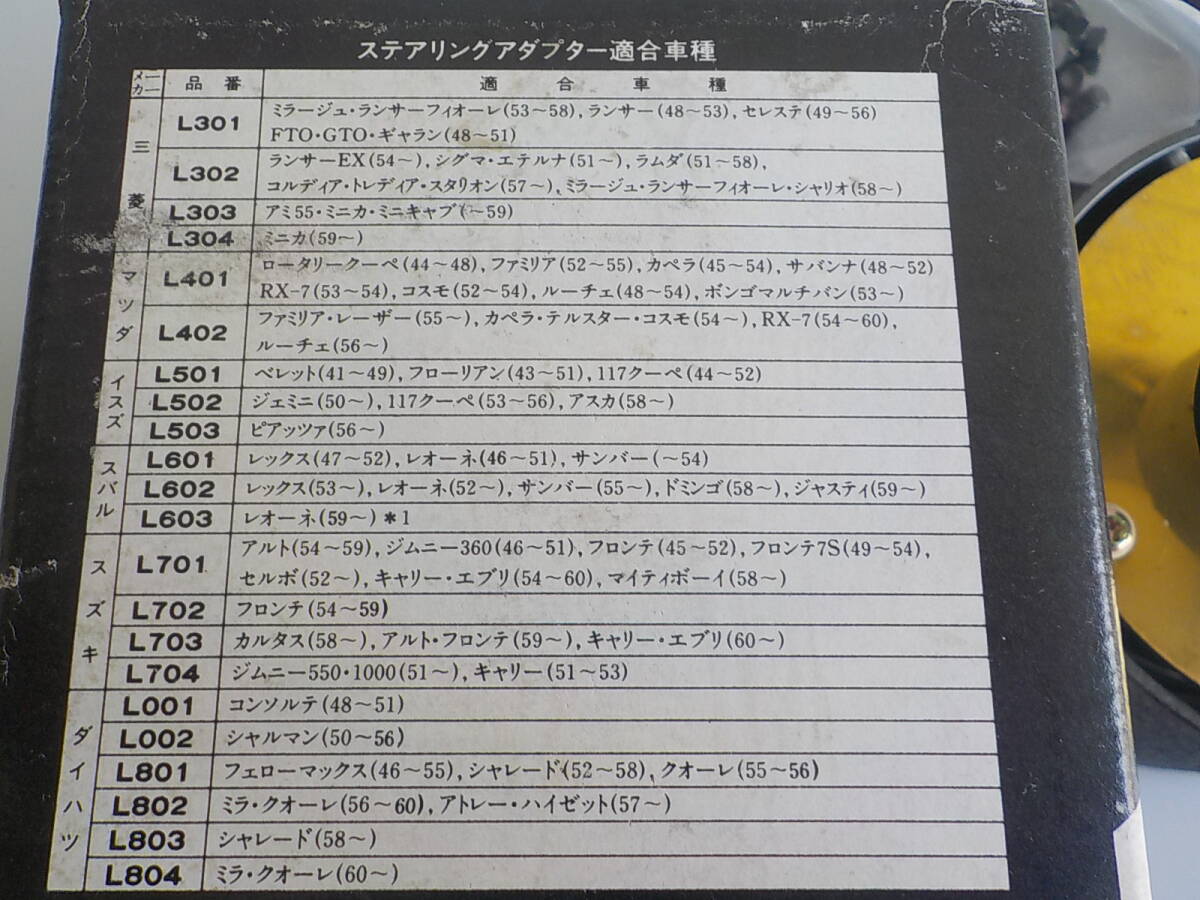 ステアリングアダプター適合車種
メーカー 品番 適合車種
三菱
L301 ミラージュ・ランサーフィオーレ(53〜58), ランサー(48〜53), セレステ(49〜56)
FTO・GTO・ギャラン(48〜51)
L302 ランサーEX(54〜), シグマ・エテルナ(51〜), ラムダ(51〜58),
コルディア・トレディア・スタリオン(57〜), ミラージュ・ランサーフィオーレ・シャリオ(58〜)
L303 アミ55・ミニカ・ミニキャブ(〜59)
L304 ミニカ(59〜)
マツダ
L401 ロータリークーペ(44〜48), ファミリア(52〜55), カペラ(45〜54), サバンナ(48〜52)
RX-7(53〜54), コスモ(52〜54), ルーチェ(48〜54), ボンゴマルチバン(53〜)
L402 ファミリア・レーザー(55〜), カペラ・テルスター・コスモ(54〜), RX-7(54〜60),
ルーチェ(56〜)
イスズ
L501 ベレット(41〜49), フローリアン(43〜51), 117クーペ(44〜52)
L502 ジェミニ(50〜), 117クーペ(53〜56), アスカ(58〜)
L503 ピアッツァ(56〜)
スバル
L601 レックス(47〜52), レオーネ(46〜51), サンバー(〜54)
L602 レックス(53〜), レオーネ(52〜), サンバー(55〜), ドミンゴ(58〜), ジャスティ(59〜)
L603 レオーネ(59〜)*1
スズキ
L701 アルト(54〜59), ジムニー360(46〜51), フロンテ(45〜52), フロンテ7S(49〜54),
セルボ(52〜), キャリー・エブリ(54〜60), マイティボーイ(58〜)
L702 フロンテ(54〜59)
L703 カルタス(58〜), アルト・フロンテ(59〜), キャリー・エブリ(60〜)
L704 ジムニー550・1000(51〜), キャリー(51〜53)
ダイハツ
L001 コンソルテ(48〜51)
L002 シャルマン(50〜56)
L801 フェローマックス(46〜55), シャレード(52〜58), クオーレ(55〜56)
L802 ミラ・クオーレ(56〜60), アトレー・ハイゼット(57〜)
L803 シャレード(58〜)
L804 ミラ・クオーレ(60〜)